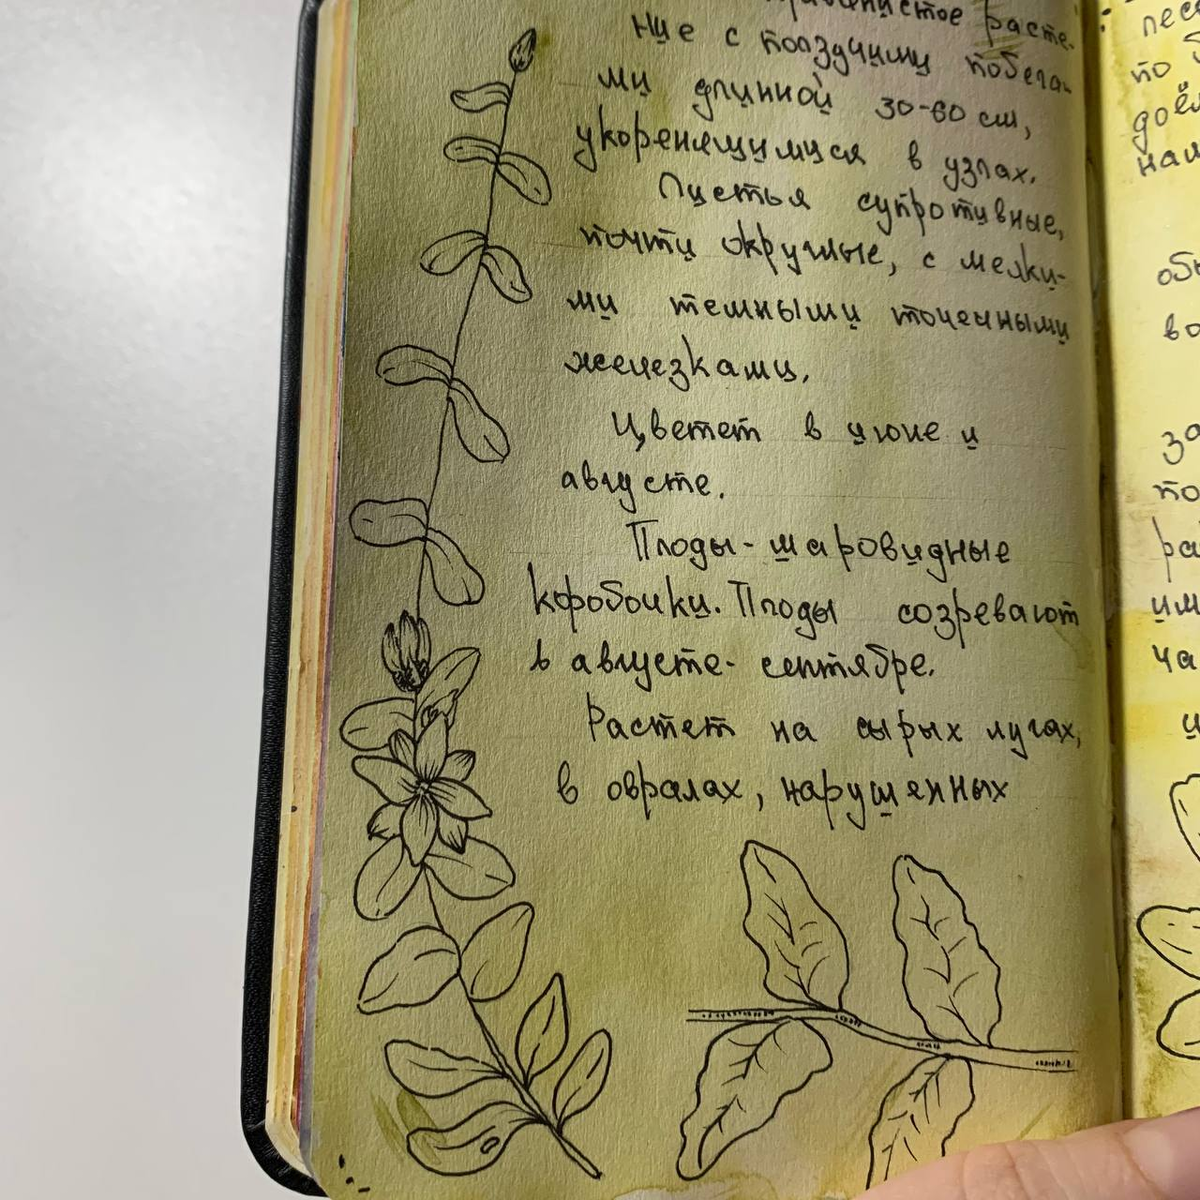 расте-
ние с ползучими побега-
ми длинной 30-60 см,
укореняющимися в узлах.
Листья супротивные,
почти округлые, с мелки-
ми темными точечными
железками.
Цветет в июне и
августе.
Плоды - шаровидные
коробочки. Плоды созревают
в августе - сентябре.
Растет на сырых лугах,
в овралах, нарушенных